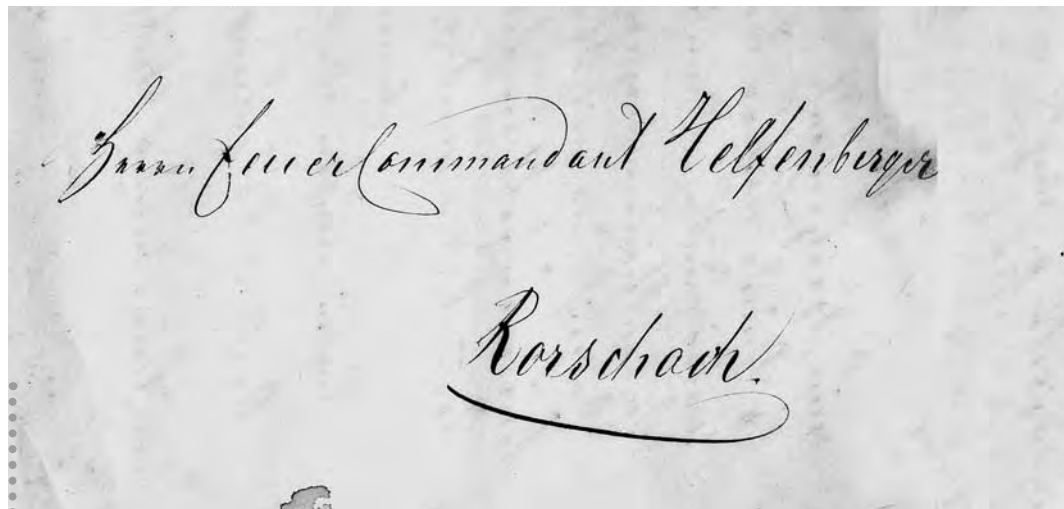 Herrn Feuer Commandant Helfenberger
Rorschach.